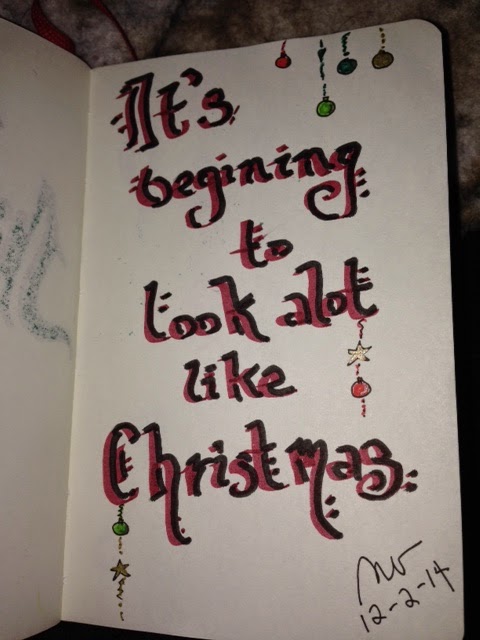 It's
begining
to
look alot
like
Christmas
12-2-14